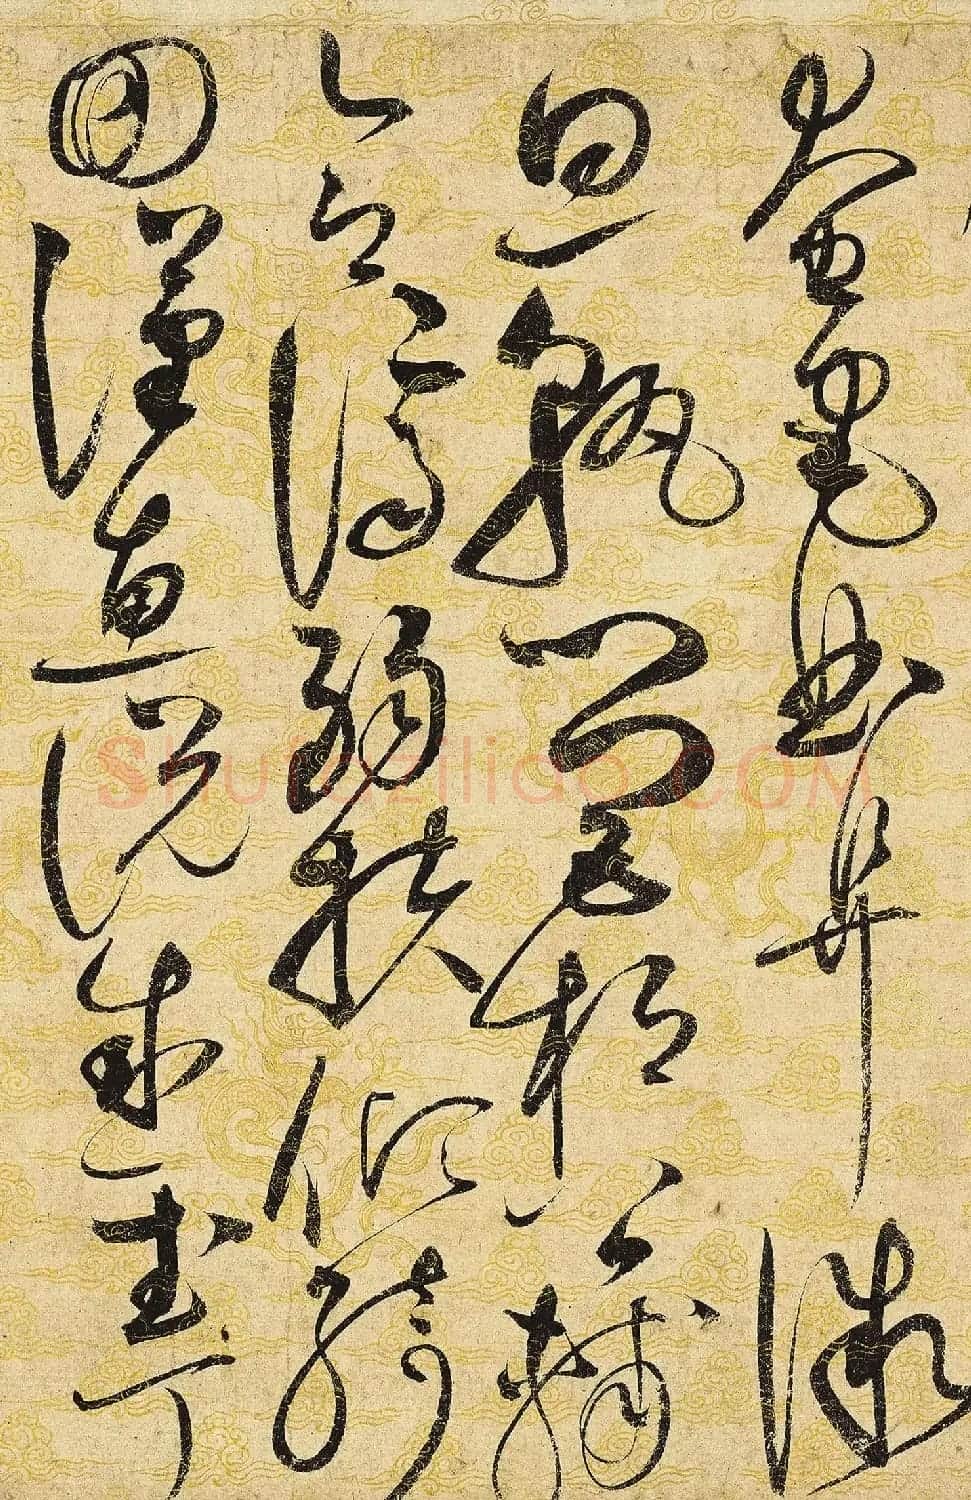 奄宅曲阜微
旦孰營桓公輔
合濟弱扶傾綺
回漢惠說感武丁
Shufaziliao.COM